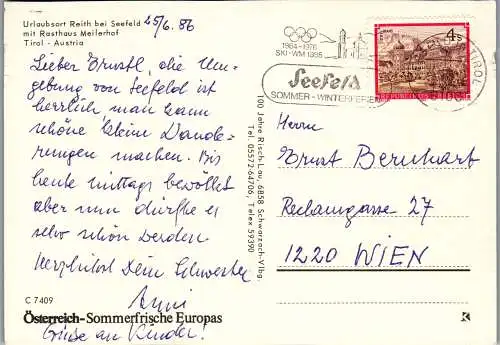 Urlaubsort Reith bei Seefeld
mit Rasthaus Meilerhof
Tirol - Austria
25/6. 86
Lieber Ernstl, die Um-
gebung von Seefeld ist
herrlich, man kann
schöne kleine Wande-
rungen machen. Bis
heute mittags bewölkt
aber nun dürfte es
sehr schön werden.
Herzlichst Dein Schwester
Anni
Grüße an Kinder!
C 7409
Österreich-Sommerfrische Europas
100 Jahre Risch-Lau, 6858 Schwarzach-Vlbg.
Tel. 05572-64706, Telex 59390
1964-1976
SKI-WM 1985
Seefeld
SOMMER - WINTERFERIEN
4 S
TIROL
Herrn
Ernst Bernhart
Rechamgasse 27
1220 WIEN